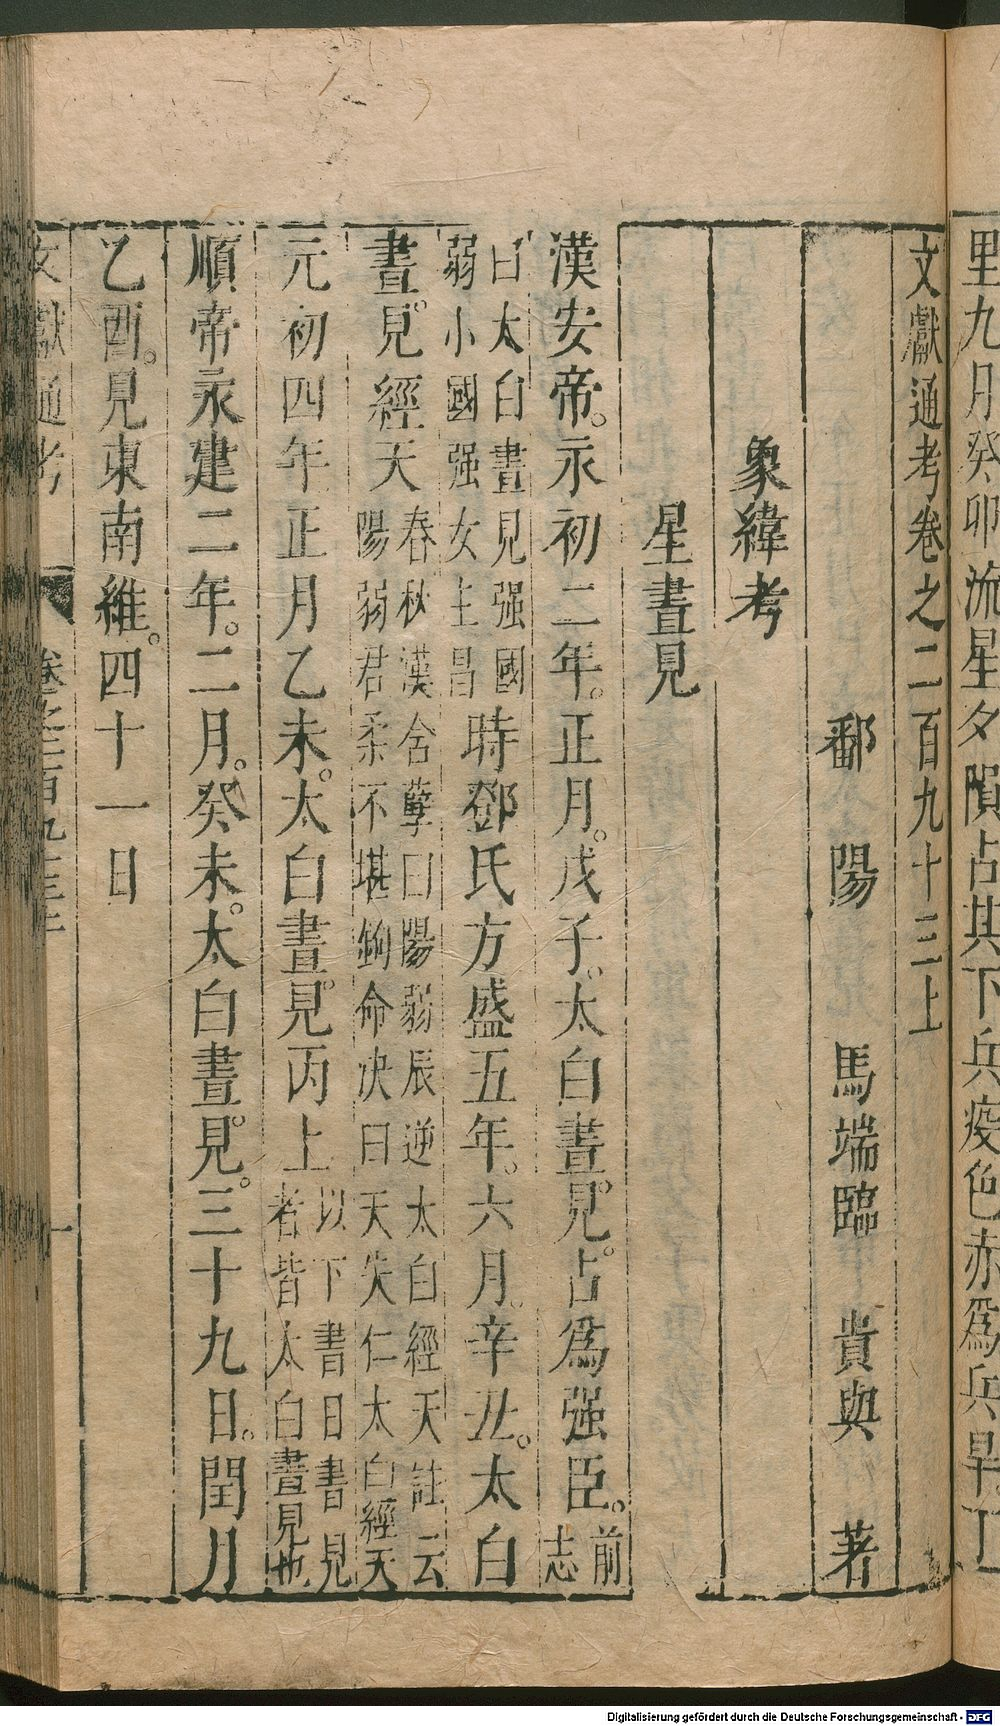 里九月癸卯流星夕隕占其下兵疫色赤爲兵旱
文獻通考卷之二百九十三上
鄱陽 馬端臨 貴與 著
象緯考
星晝見
漢安帝。永初二年。正月。戊子。太白晝見。占爲强臣。前志
曰太白晝見强國弱小國强女主昌時鄧氏方盛五年。六月。辛丑。太白
晝。見經天春秋漢含孳曰陽弱辰逆太白經天註云陽弱君柔不堪鉤命决曰天失仁太白經天
元初四年正月乙未。太白晝。見丙上以下書日書見者皆太白晝見也
順帝永建二年。二月。癸未。太白晝。見。三十九日。閏月
乙酉。見東南維。四十一日
文獻通考 卷之二百九十三上 一
Digitalisierung gefördert durch die Deutsche Forschungsgemeinschaft - DFG